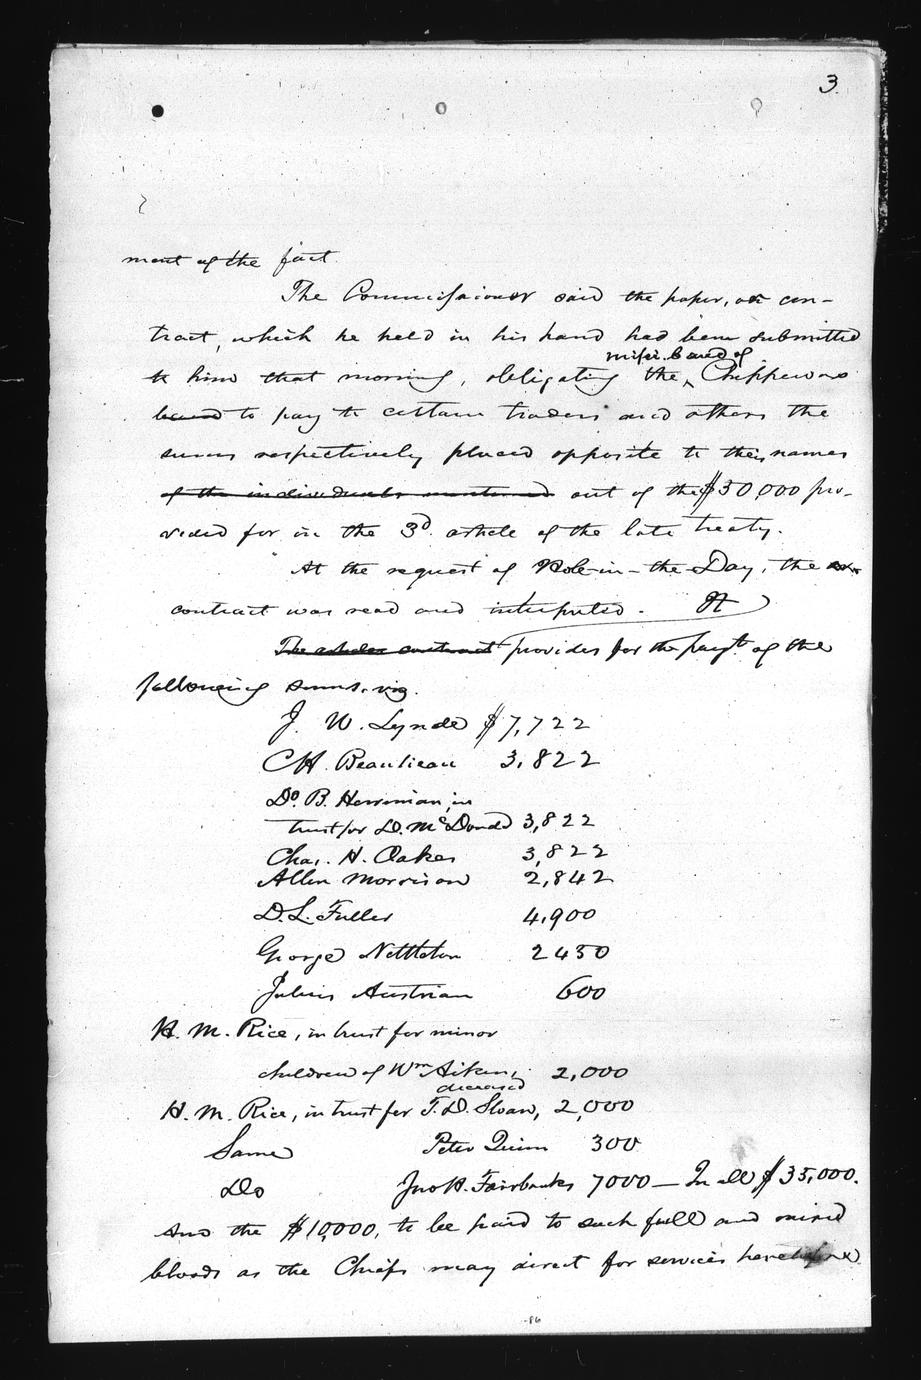 3.
ment of the fact.
The Commissioner said the paper, or con-
tract, which he held in his hand had been submitted
missi. band of
to him that morning, obligating the Chippewas
band to pay to certain traders and others the
sums respectively placed opposite to their names
of the individuals mentioned out of the $30,000 pro-
vided for in the 3d. article of the late treaty.
At the request of Hole-in-the-Day, the
contract was read and interpreted. It
The contract provides for the payt. of the
following sums, viz.
J. W. Lynde $7,722
C H. Beaulieau 3,822
Do. B. Herriman, in
trust for D. McDonald 3,822
Chas. H. Oakes 3,822
Allen Morrison 2,842
D. L. Fuller 4,900
George Nettleton 2450
Julius Austrian 600
H. M. Rice, in trust for minor
children of Wm Aitken, 2,000
deceased
H. M. Rice, in trust for T. D. Sloan, 2,000
Same Peter Quinn 300
Do Jno H. Fairbanks 7000 — In all $35,000.
And the $10,000, to be paid to such full and mixed
bloods as the Chiefs may direct for services heretofore
-86